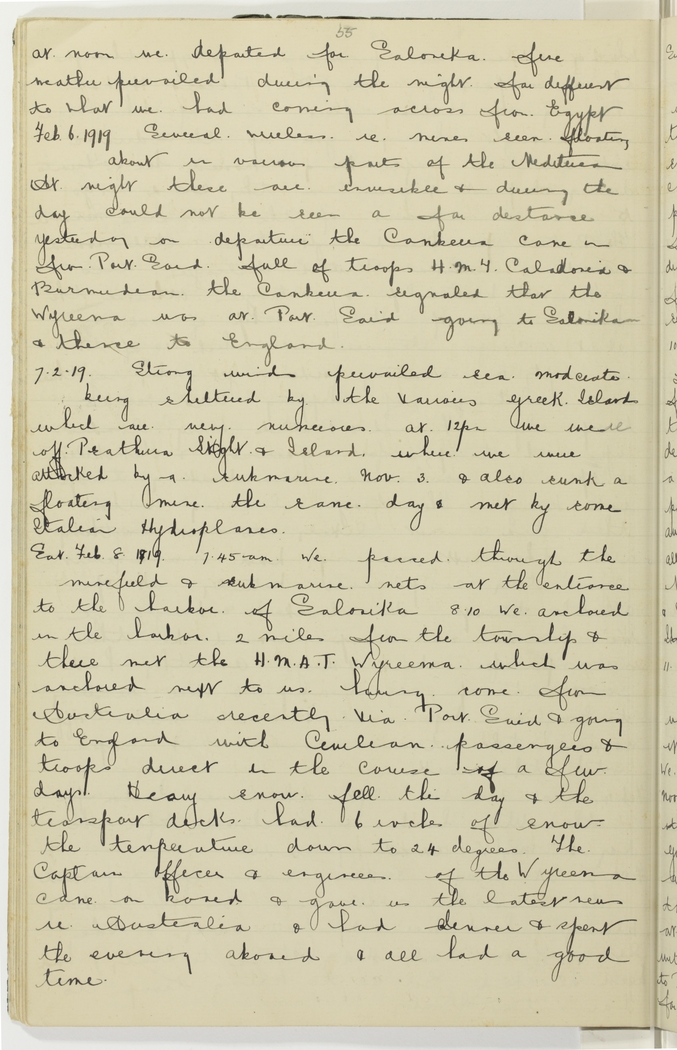 55
at noon we departed for Salonika. fine
weather prevailed during the night. far different
to what we had coming across from Egypt
Feb. 6. 1919 Several wireless re mines seen floating
about in various parts of the Mediterran
At night these are invisible & during the
day could not be seen a far distance
yesterday on departure the Canberra came in
from Port Said. full of troops H.M.Y. Caladonia &
Burmudean. the Canberra signaled that the
Wyreema was at Port Said going to Salonika
& thence to England.
7.2.19. Strong winds prevailed sea moderate.
being sheltered by the various greek Islands
which are very numerous. at 12pm we were
off. Light & Island. where we were
attacked by a submarine. Nov. 3. & also sunk a
floating mine the same day & met by some
Italian Hydroplanes.
Sat. Feb. 8 1919. 7.45 am We passed through the
minefield & submarine nets at the entrance
to the harbor of Salonika 8.10 We anchored
in the harbor. 2 miles from the township &
there met the H.M.A.T. Wyreema. which was
anchored next to us. having come from
Australia recently via Port Said & going
to England with Civilian passengers &
troops direct in the course of a few
days. Heavy snow fell the day & the
transport decks had 6 inches of snow
the temperature down to 24 degrees. The
Captain officer & engineer of the Wyreema
came on bored & gave us the latest news
re Australia & had dinner & spent
the evening abored & all had a good
time.